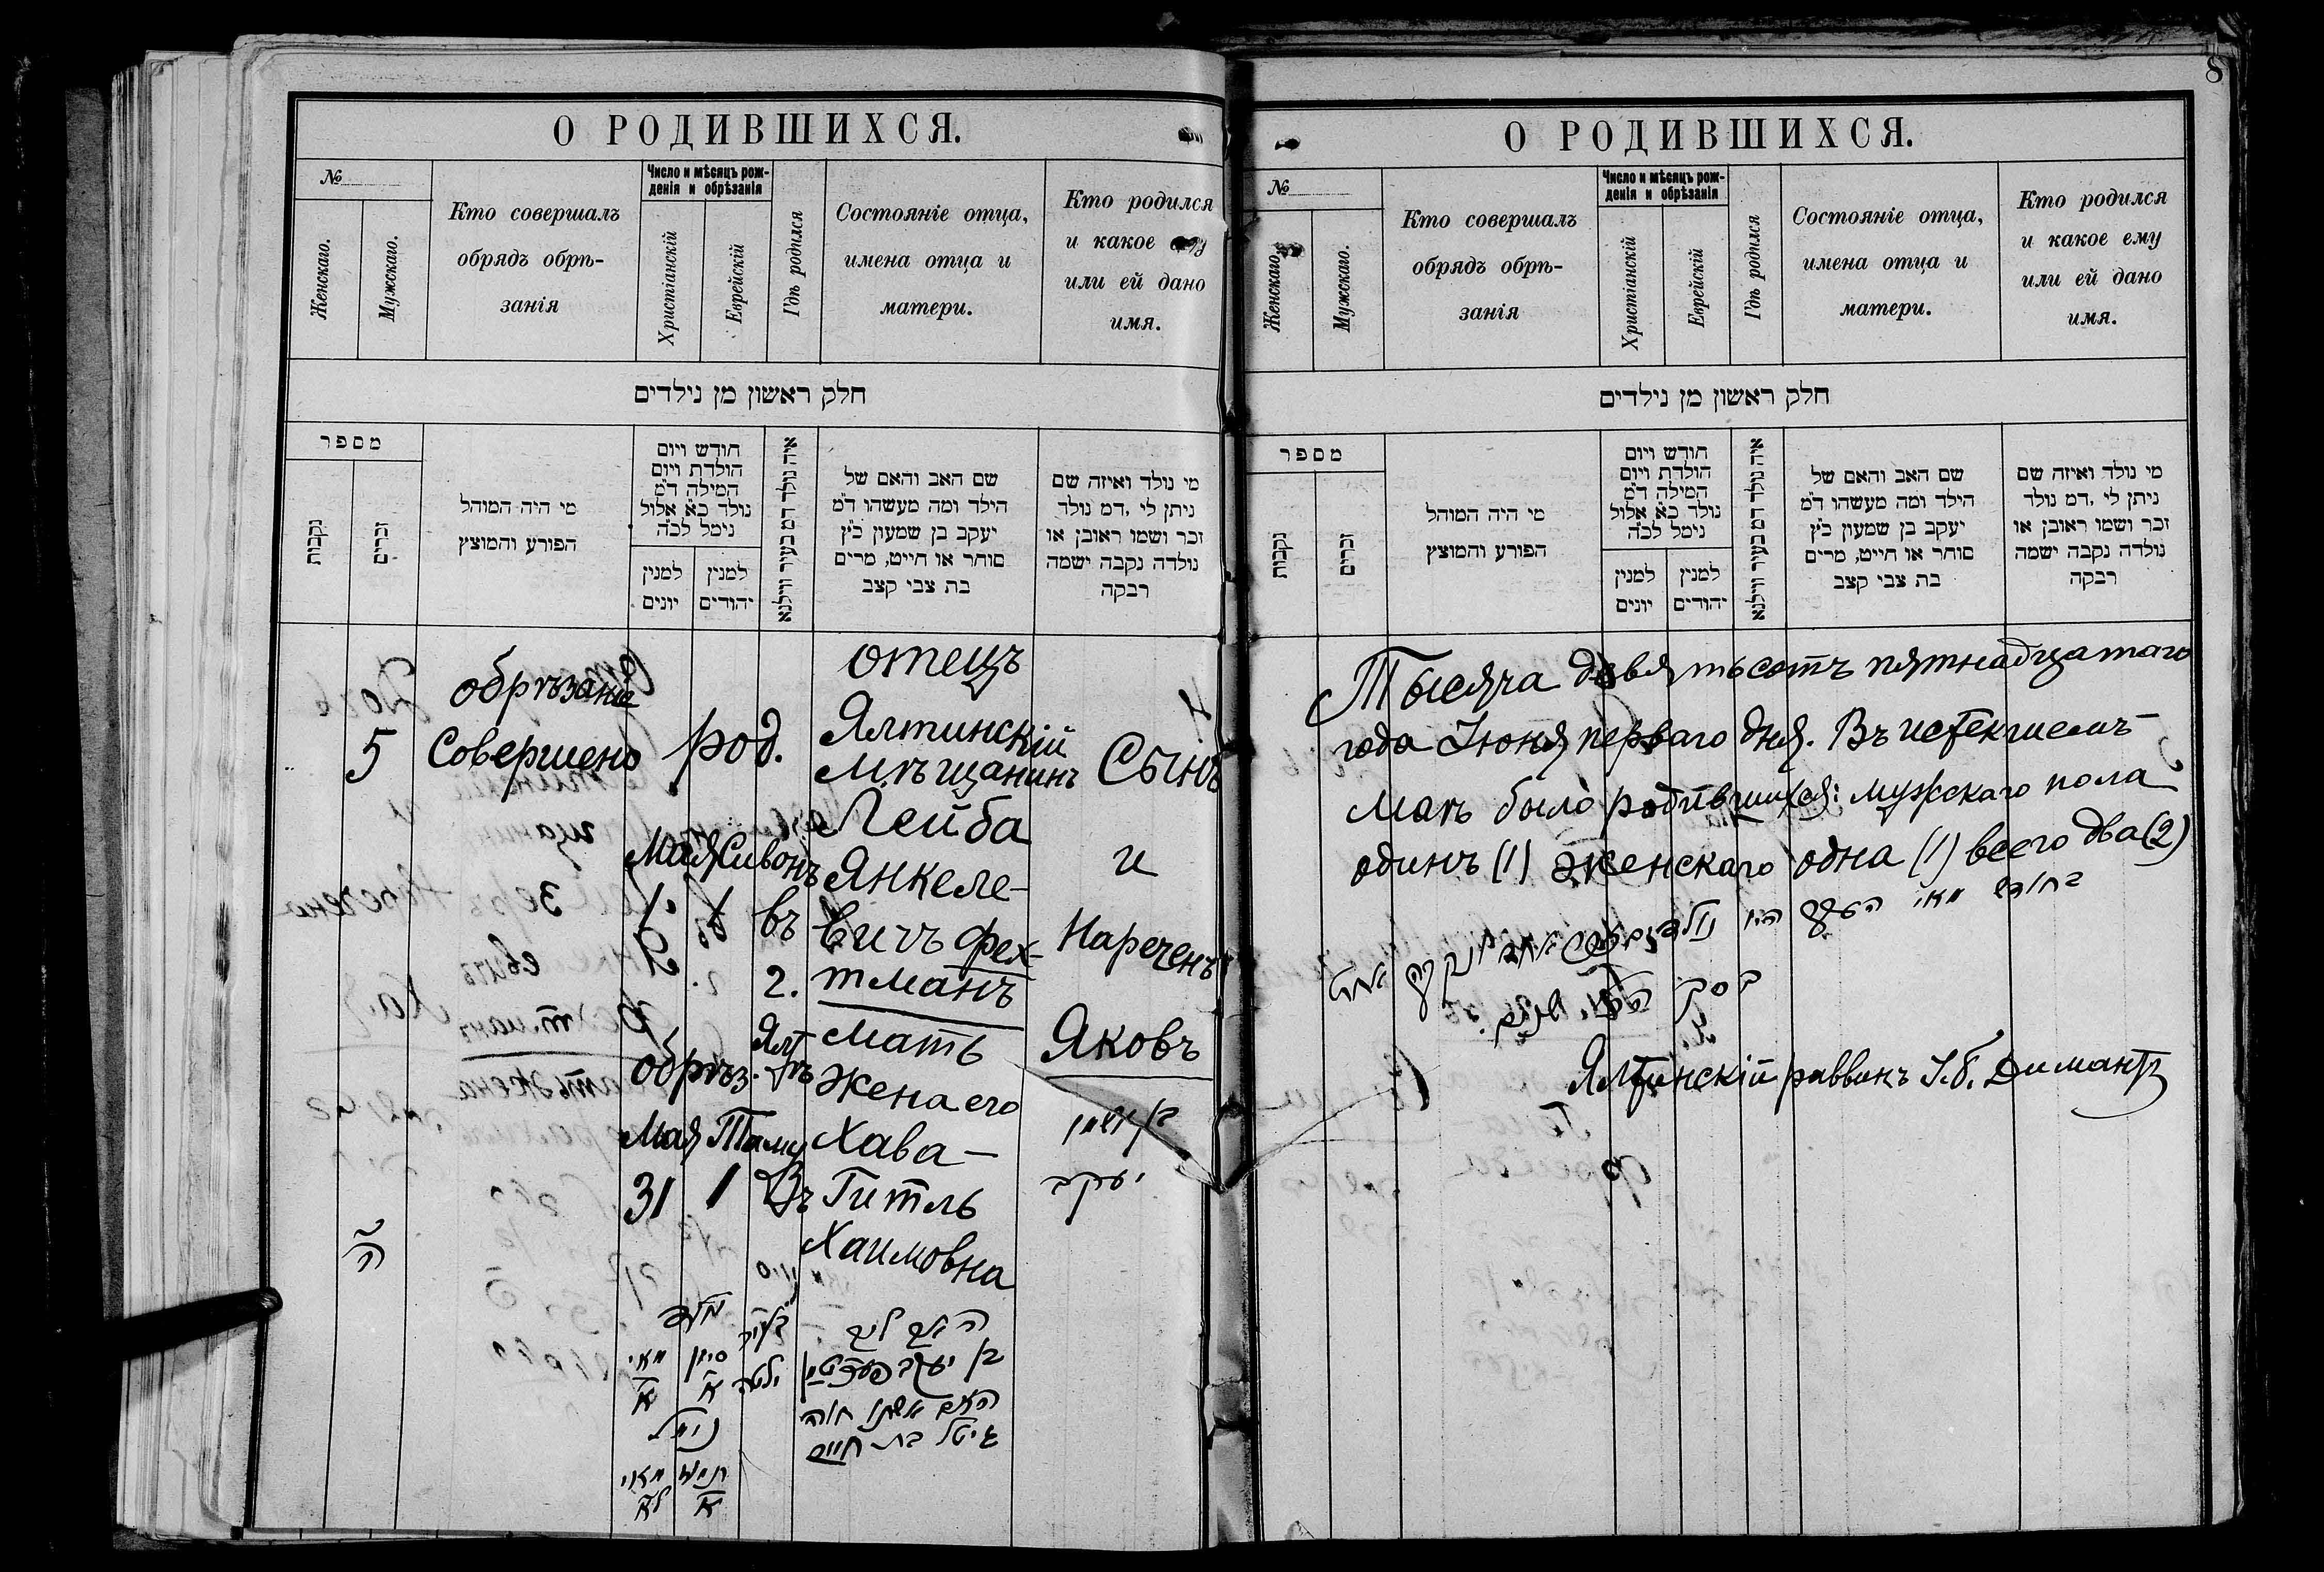 8
О РОДИВШИХСЯ.
№
Женскаго.
Мужскаго.
Кто совершалъ
обрядъ обрѣ-
занія
Число и мѣсяцъ рож-
денія и обрѣзанія
Христіанскій
Еврейскій
Гдѣ родился
Состояніе отца,
имена отца и
матери.
Кто родился
и какое ему
или ей дано
имя.
חלק ראשון מן נילדים
מספר
נקבות
זכרים
מי היה המוהל
הפורע והמוצץ
חודש ויום
הולדת ויום
המילה ד"מ
נולד כ"א אלול
נימל לכ"ה
למנין
יונים
למנין
יהודים
איה נולד דמ בעיר ווילנא
שם האב והאם של
הילד ומה מעשהו ד"מ
יעקב בן שמעון כ"ץ
סוחר או חייט, מרים
בת צבי קצב
מי נולד ואיזה שם
ניתן לי, דמ נולד
זכר ושמו ראובן או
נולדה נקבה ישמה
רבקה
5
обрѣзаніе
Совершено
род.
Мая Сивонъ
1 1
въ
г.
Ял-
тѣ
обрѣз.
Мая Таму
31 1
отецъ
Ялтинскій
Мѣщанинъ
Лейба
Янкеле-
вичъ Фех-
тманъ
мать
жена его
Хава-
Гитль
Хаимовна
Сынъ
и
Нареченъ
Яковъ
בן ושמו
יעקב
ה
נולד
מאי
א
סיון
א
בעיר
ילטה
נימול
מאי
לא
תמוז
א
האב ליב
בן יעקב פעכטמן
האם אשתו חוה
גיטל בת חיים
О РОДИВШИХСЯ.
№
Женскаго.
Мужскаго.
Кто совершалъ
обрядъ обрѣ-
занія
Число и мѣсяцъ рож-
денія и обрѣзанія
Христіанскій
Еврейскій
Гдѣ родился
Состояніе отца,
имена отца и
матери.
Кто родился
и какое ему
или ей дано
имя.
חלק ראשון מן נילדים
מספר
נקבות
זכרים
מי היה המוהל
הפורע והמוצץ
חודש ויום
הולדת ויום
המילה ד"מ
נולד כ"א אלול
נימל לכ"ה
למנין
יונים
למנין
יהודים
איה נולד דמ בעיר ווילנא
שם האב והאם של
הילד ומה מעשהו ד"מ
יעקב בן שמעון כ"ץ
סוחר או חייט, מרים
בת צבי קצב
מי נולד ואיזה שם
ניתן לי, דמ נולד
זכר ושמו ראובן או
נולדה נקבה ישמה
רבקה
Тысяча девятьсотъ пятнадцатаго
года Іюня перваго дня. Въ истекшемъ
маѣ было родившихся: мужскаго пола
одинъ (1) женскаго одна (1) всего два (2)
בחודש מאי העבר היו נולדים
בסך הכל שנים.
Ялтинскій раввинъ І. б. Димантъ